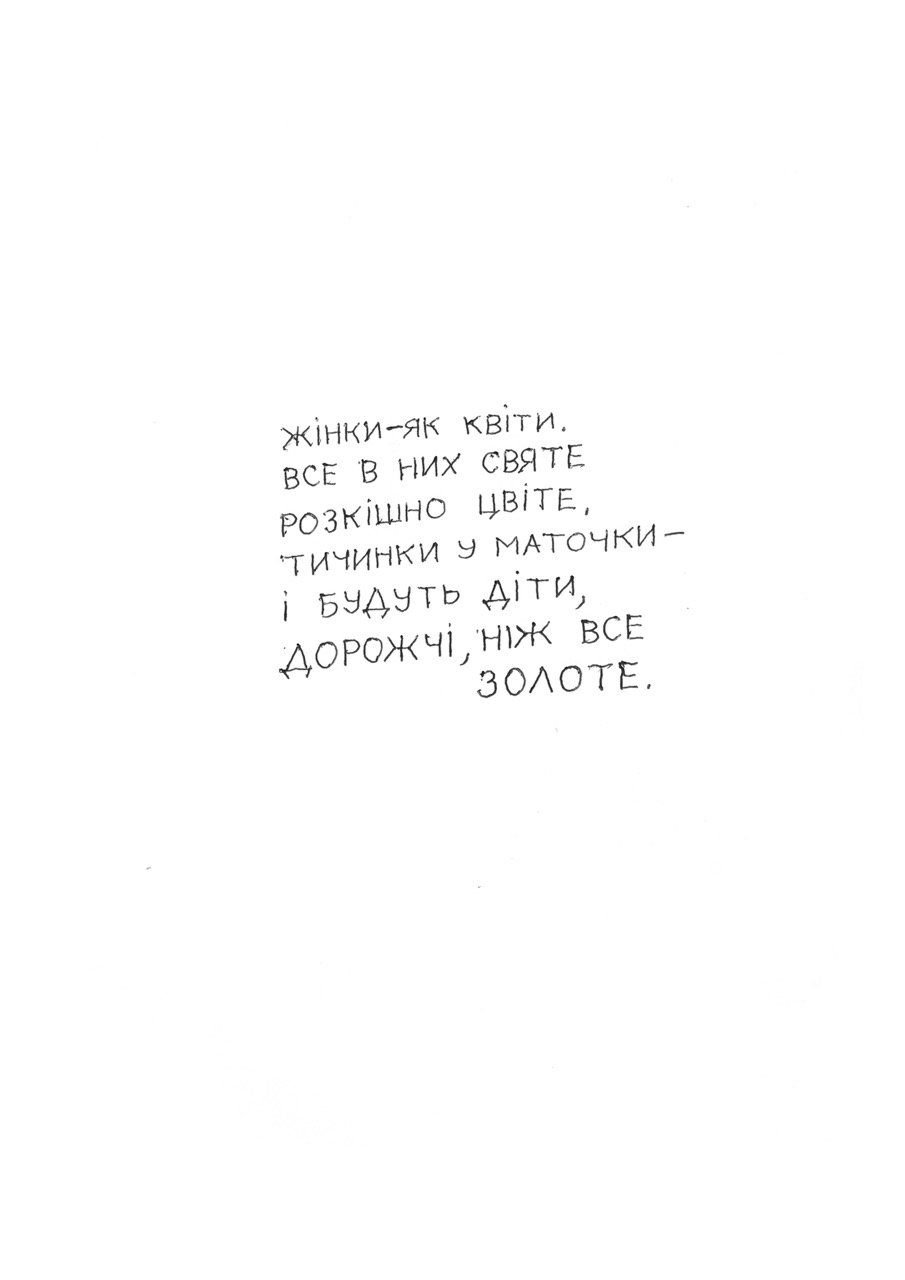 ЖІНКИ-ЯК КВІТИ.
ВСЕ В НИХ СВЯТЕ
РОЗКІШНО ЦВІТЕ,
ТИЧИНКИ У МАТОЧКИ-
І БУДУТЬ ДІТИ,
ДОРОЖЧІ, НІЖ ВСЕ
ЗОЛОТЕ.